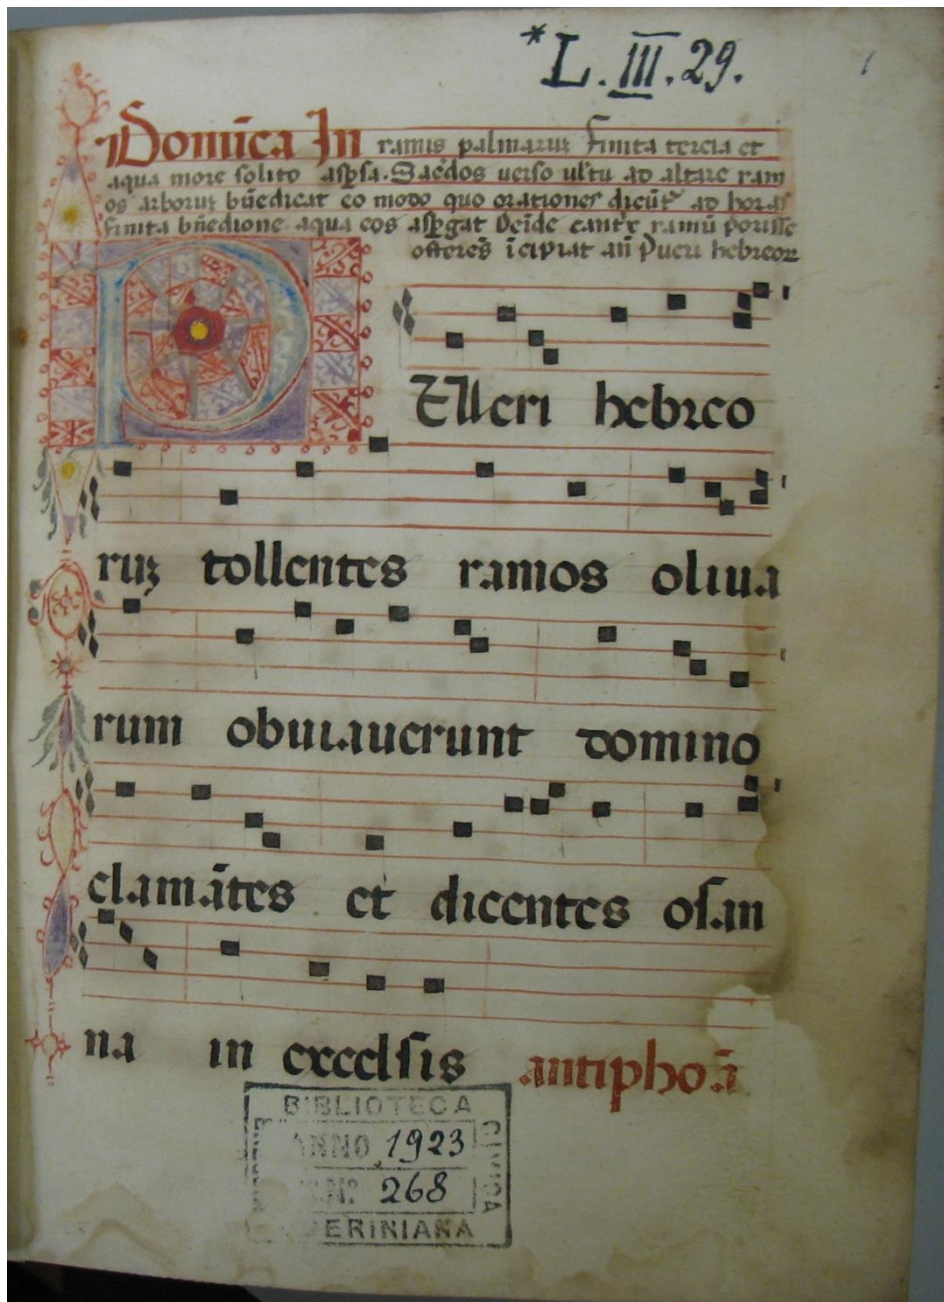 *L.III.29.
Domĩca In ramis palmaruʒ finita tercia et
aqua more solito aspsa. Sacẽdos uerso uultu ad altare ram
os arboruʒ bñedicat eo modo quo orationes dicũt᷑ ad horas
finita bñedione aqua eos aspgat Deĩde cantr̃ ramũ
offeres ĩcipiat añ Pueri hebreor
PUeri hebreo
ruʒ tollentes ramos oliua
rum obuiauerunt domino
clamãtes et dicentes osan
na in excelsis antiphoã
BIBLIOTECA
ANNO 1923
CIVICA
N° 268
QUERINIANA